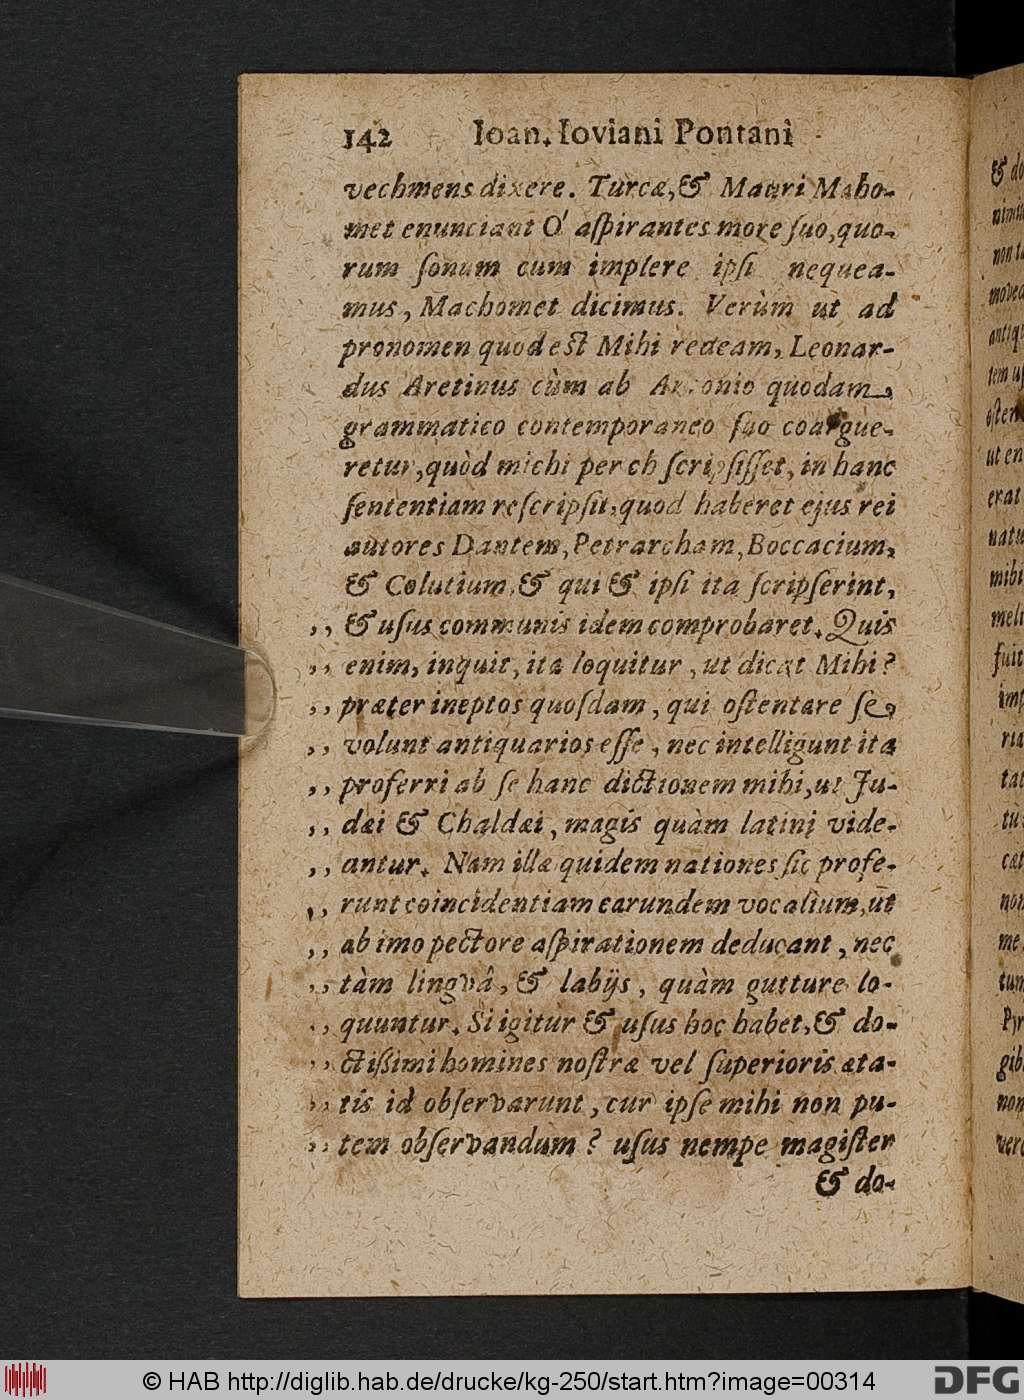 142 Ioan. Ioviani Pontani
vechmens dixere. Turcæ, & Mauri Maho-
met enunciant O' aſpirantes more ſuo, quo-
rum ſonum cum implere ipſi nequea-
mus, Machomet dicimus. Verùm ut ad
pronomen quod eſt Mihi redeam, Leonar-
dus Aretinus cùm ab Antonio quodam
grammatico contemporaneo ſuo coargue-
retur, quòd michi per ch ſcripſiſſet, in hanc
ſententiam reſcripſit, quod haberet ejus rei
autores Dantem, Petrarcham, Boccacium,
& Colutium, & qui & ipſi ita ſcripſerint,
,, & uſus communis idem comprobaret. Quis
,, enim, inquit, ita loquitur, ut dicat Mihi?
,, præter ineptos quoſdam, qui oſtentare ſe
,, volunt antiquarios eſſe, nec intelligunt ita
,, proferri ab ſe hanc dictionem mihi, ut Ju-
,, dæi & Chaldæi, magis quàm latini vide-
,, antur. Nam illæ quidem nationes ſic profe-
,, runt coincidentiam earundem vocalium, ut
,, ab imo pectore aſpirationem deducant, nec
,, tàm lingvâ, & labijs, quàm gutture lo-
,, quuntur. Si igitur & uſus hoc habet, & do-
,, ctißimi homines noſtræ vel ſuperioris æta-
,, tis id obſervarunt, cur ipſe mihi non pu-
,, tem obſervandum? uſus nempe magiſter
& do-
© HAB http://diglib.hab.de/drucke/kg-250/start.htm?image=00314
DFG